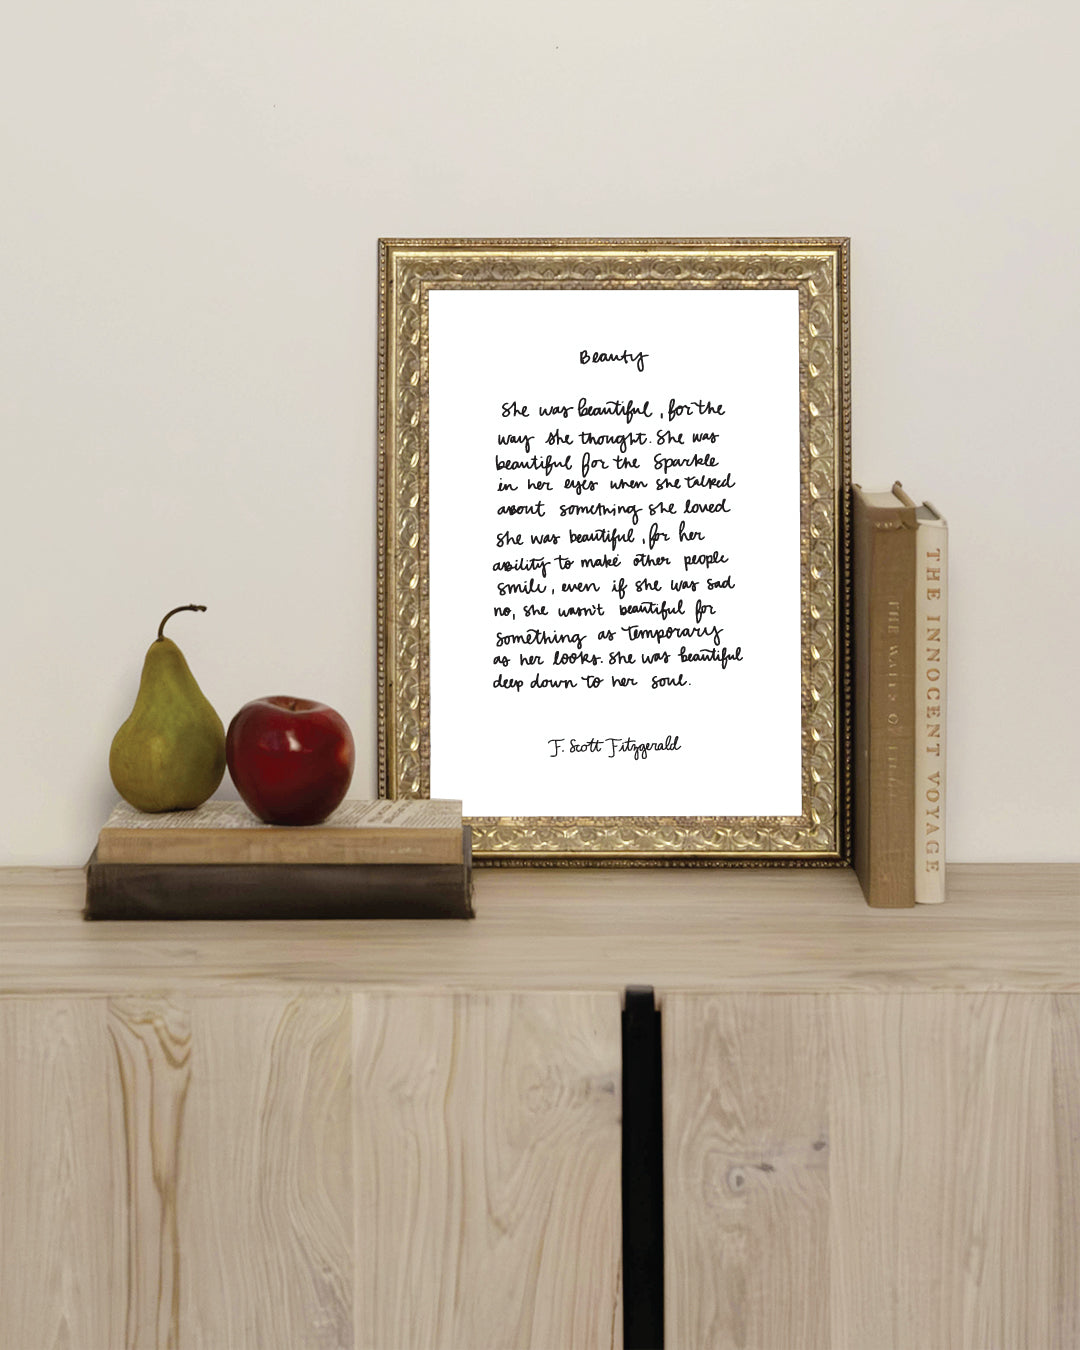 Beauty
She was beautiful, for the
way she thought. She was
beautiful for the Sparkle
in her eyes when she talked
about something she loved
She was beautiful, for her
ability to make other people
smile, even if she was sad
no, she wasn't beautiful for
something as temporary
as her looks. She was beautiful
deep down to her soul.
F. Scott Fitzgerald
THE OF
THE INNOCENT VOYAGE